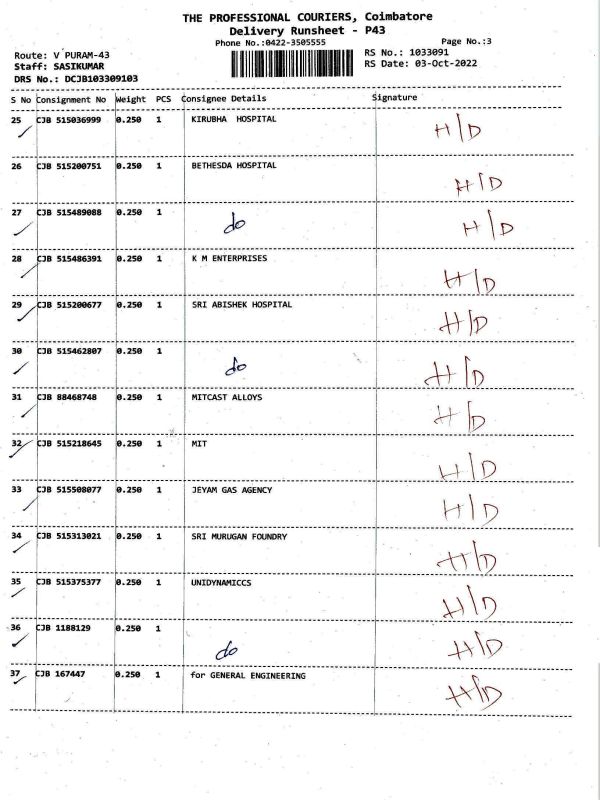 THE PROFESSIONAL COURIERS, Coimbatore
Delivery Runsheet - P43
Phone No.:0422-3505555 Page No.:3
Route: V PURAM-43 RS No.: 1033091
Staff: SASIKUMAR RS Date: 03-Oct-2022
DRS No.: DCJB103309103
S No Consignment No Weight PCS Consignee Details Signature
25 CJB 515036999 0.250 1 KIRUBHA HOSPITAL H/D
26 CJB 515200751 0.250 1 BETHESDA HOSPITAL H/D
27 CJB 515489088 0.250 1 do H/D
28 CJB 515486391 0.250 1 K M ENTERPRISES H/D
29 CJB 515200677 0.250 1 SRI ABISHEK HOSPITAL H/D
30 CJB 515462807 0.250 1 do H/D
31 CJB 88468748 0.250 1 MITCAST ALLOYS H/D
32 CJB 515218645 0.250 1 MIT H/D
33 CJB 515508077 0.250 1 JEYAM GAS AGENCY H/D
34 CJB 515313021 0.250 1 SRI MURUGAN FOUNDRY H/D
35 CJB 515375377 0.250 1 UNIDYNAMICCS H/D
36 CJB 1188129 0.250 1 do H/D
37 CJB 167447 0.250 1 for GENERAL ENGINEERING H/D